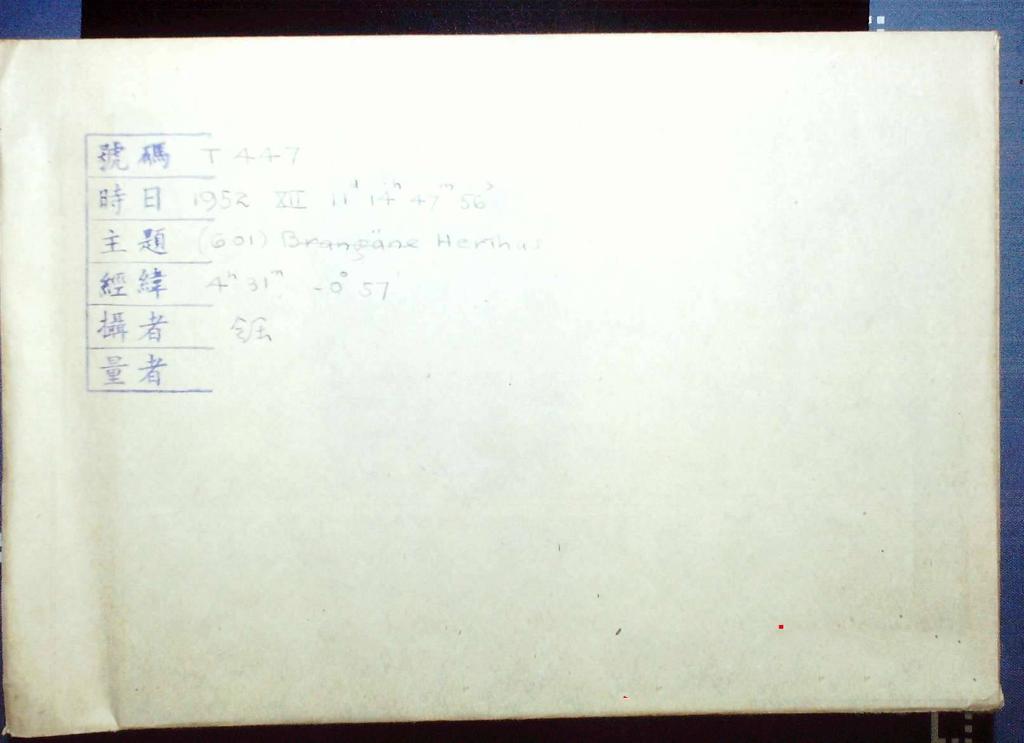 號碼 T 447
時日 1952 XII 11ᵈ 14ʰ 47ᵐ 56ˢ
主題 (601) Brangäne Herthus
經緯 4ʰ 31ᵐ -0° 57'
攝者
量者